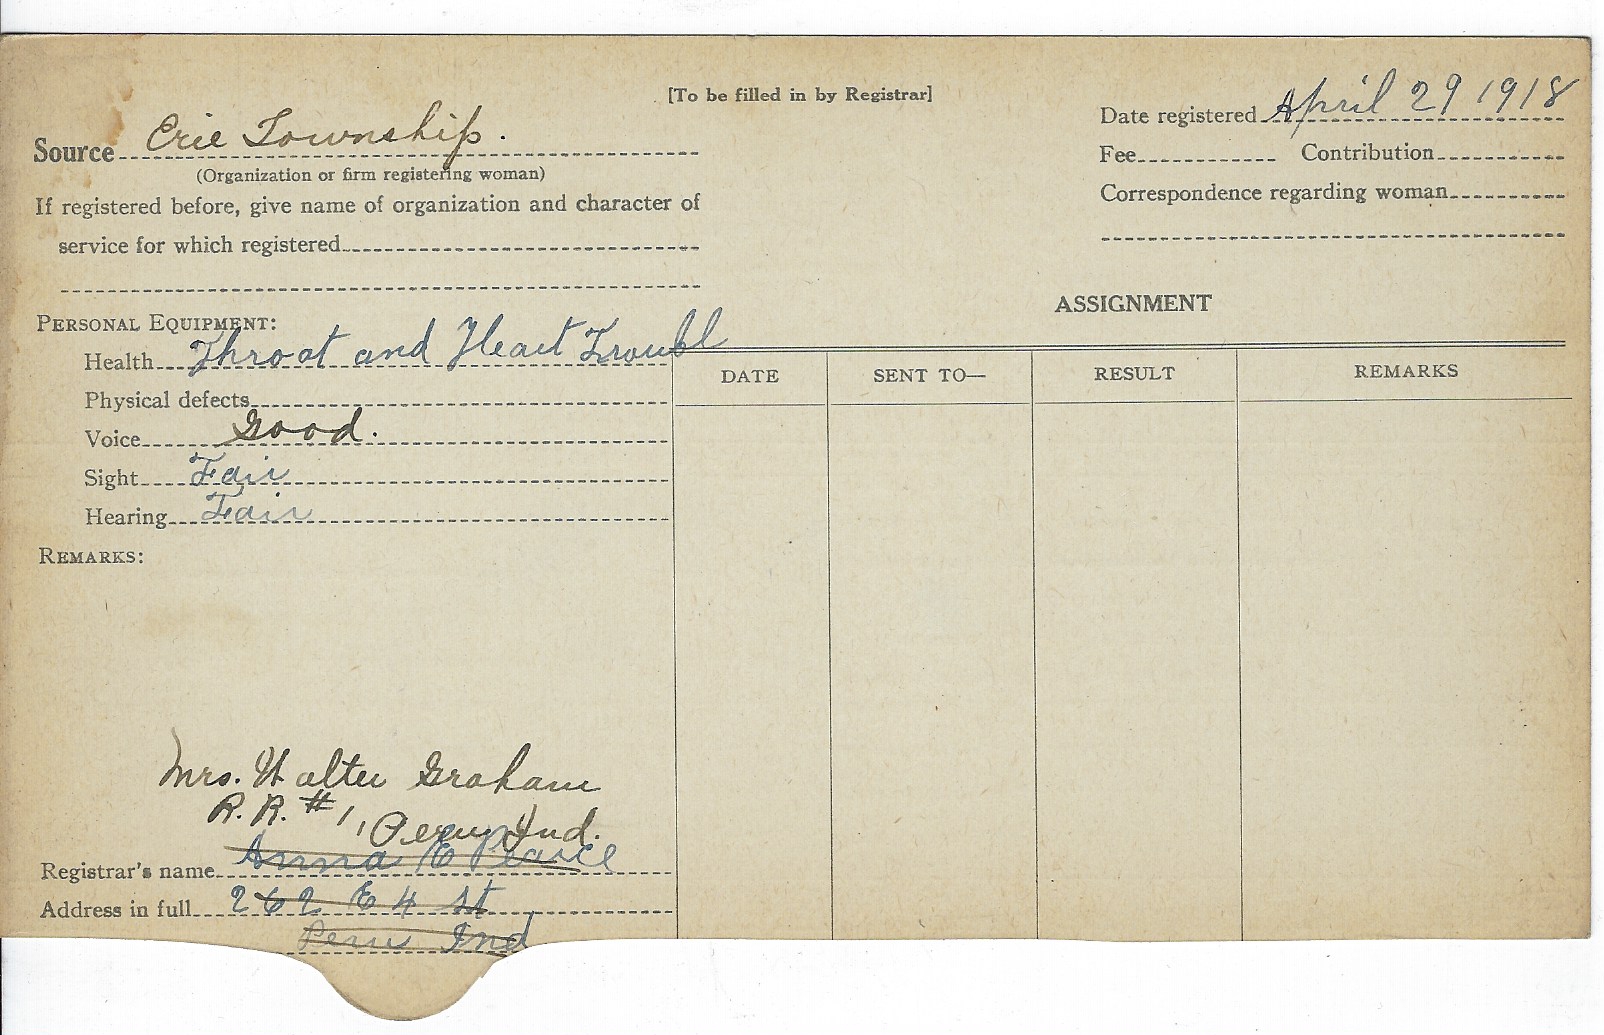 [To be filled in by Registrar]
Source Erie Township.
(Organization or firm registering woman)
If registered before, give name of organization and character of
service for which registered
Date registered April 29 1918
Fee Contribution
Correspondence regarding woman
PERSONAL EQUIPMENT:
Health Throat and Heart Troubl
Physical defects
Voice Good.
Sight Fair
Hearing Fair
REMARKS:
ASSIGNMENT
DATE SENT TO— RESULT REMARKS
Mrs. Walter Graham
R.R. #1, Peru, Ind.
Registrar's name Anna E Pearce
Address in full 262 E 4 St
Peru Ind